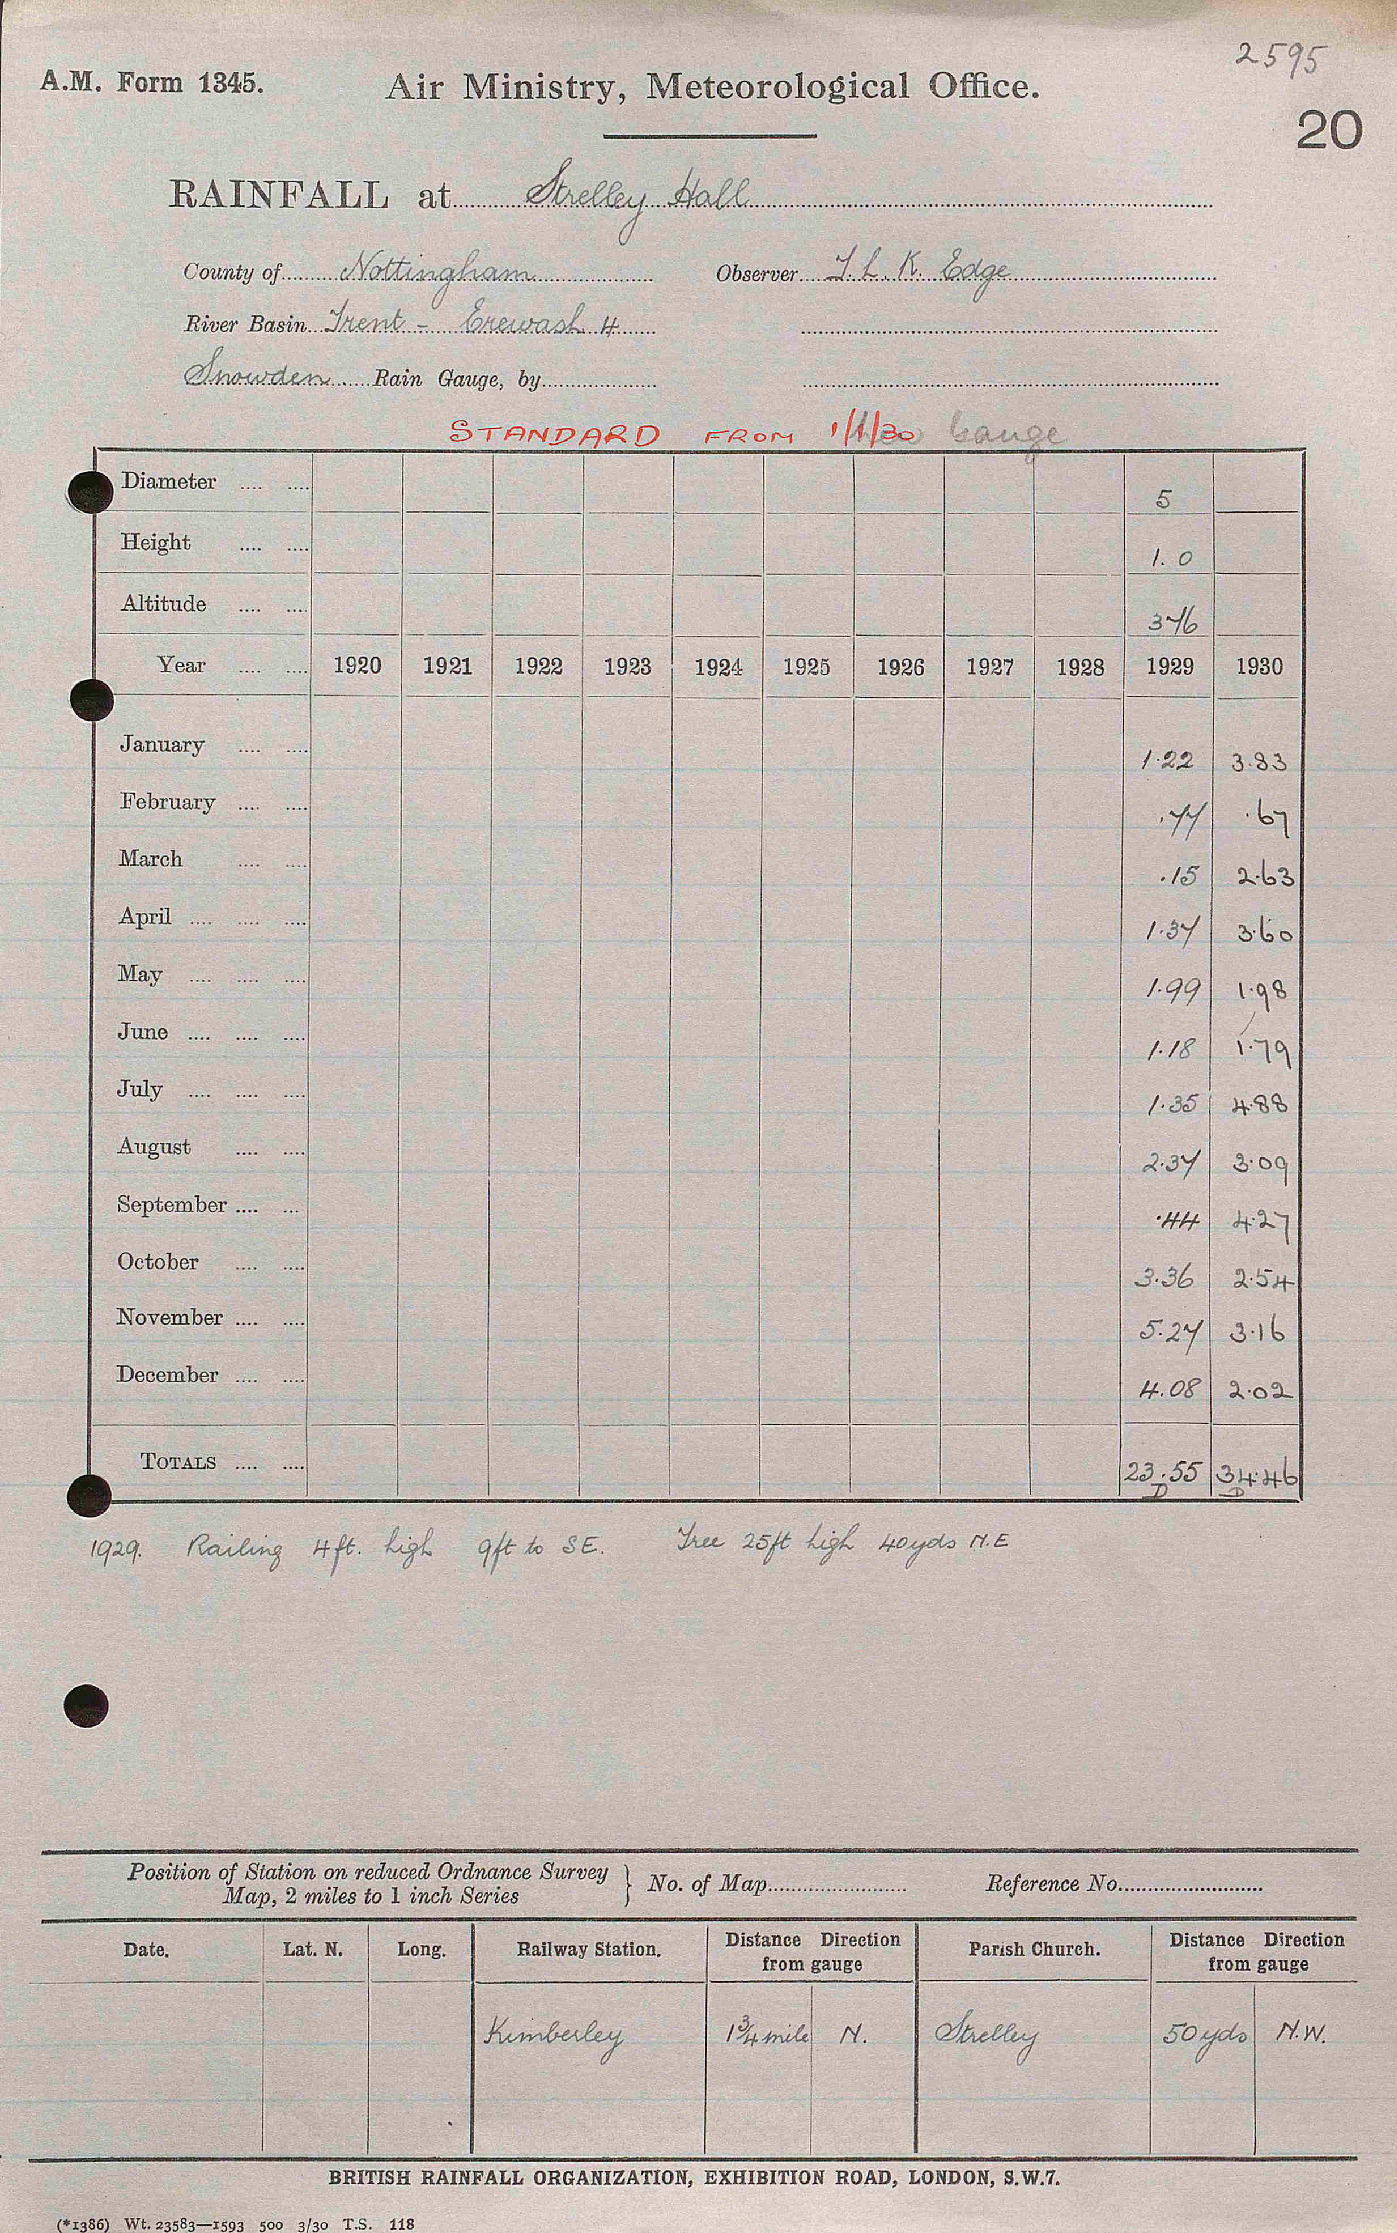 2595
A.M. Form 1345. Air Ministry, Meteorological Office.
20
RAINFALL at Strelley Hall
County of Nottingham Observer T. L. K. Edge
River Basin Trent - Erewash 4
Snowden Rain Gauge, by
STANDARD FROM 1/1/30 Gauge
Diameter 5
Height 1.0
Altitude 376
Year 1920 1921 1922 1923 1924 1925 1926 1927 1928 1929 1930
January 1.22 3.83
February .77 .67
March .15 2.63
April 1.37 3.60
May 1.99 1.98
June 1.18 1.79
July 1.35 4.88
August 2.37 3.09
September .44 4.27
October 3.36 2.54
November 5.27 3.16
December 4.08 2.02
TOTALS 23.55 34.46
D D
1929. Railing 4ft. high 9ft to SE. Tree 25ft high 40yds N.E
Position of Station on reduced Ordnance Survey
Map, 2 miles to 1 inch Series } No. of Map Reference No.
Date. Lat. N. Long. Railway Station. Distance Direction from gauge Parish Church. Distance Direction from gauge
Kimberley 1¾ mile N. Strelley 50 yds N.W.
BRITISH RAINFALL ORGANIZATION, EXHIBITION ROAD, LONDON, S.W.7.
(*1386) Wt. 23583—1593 500 3/30 T.S. 118